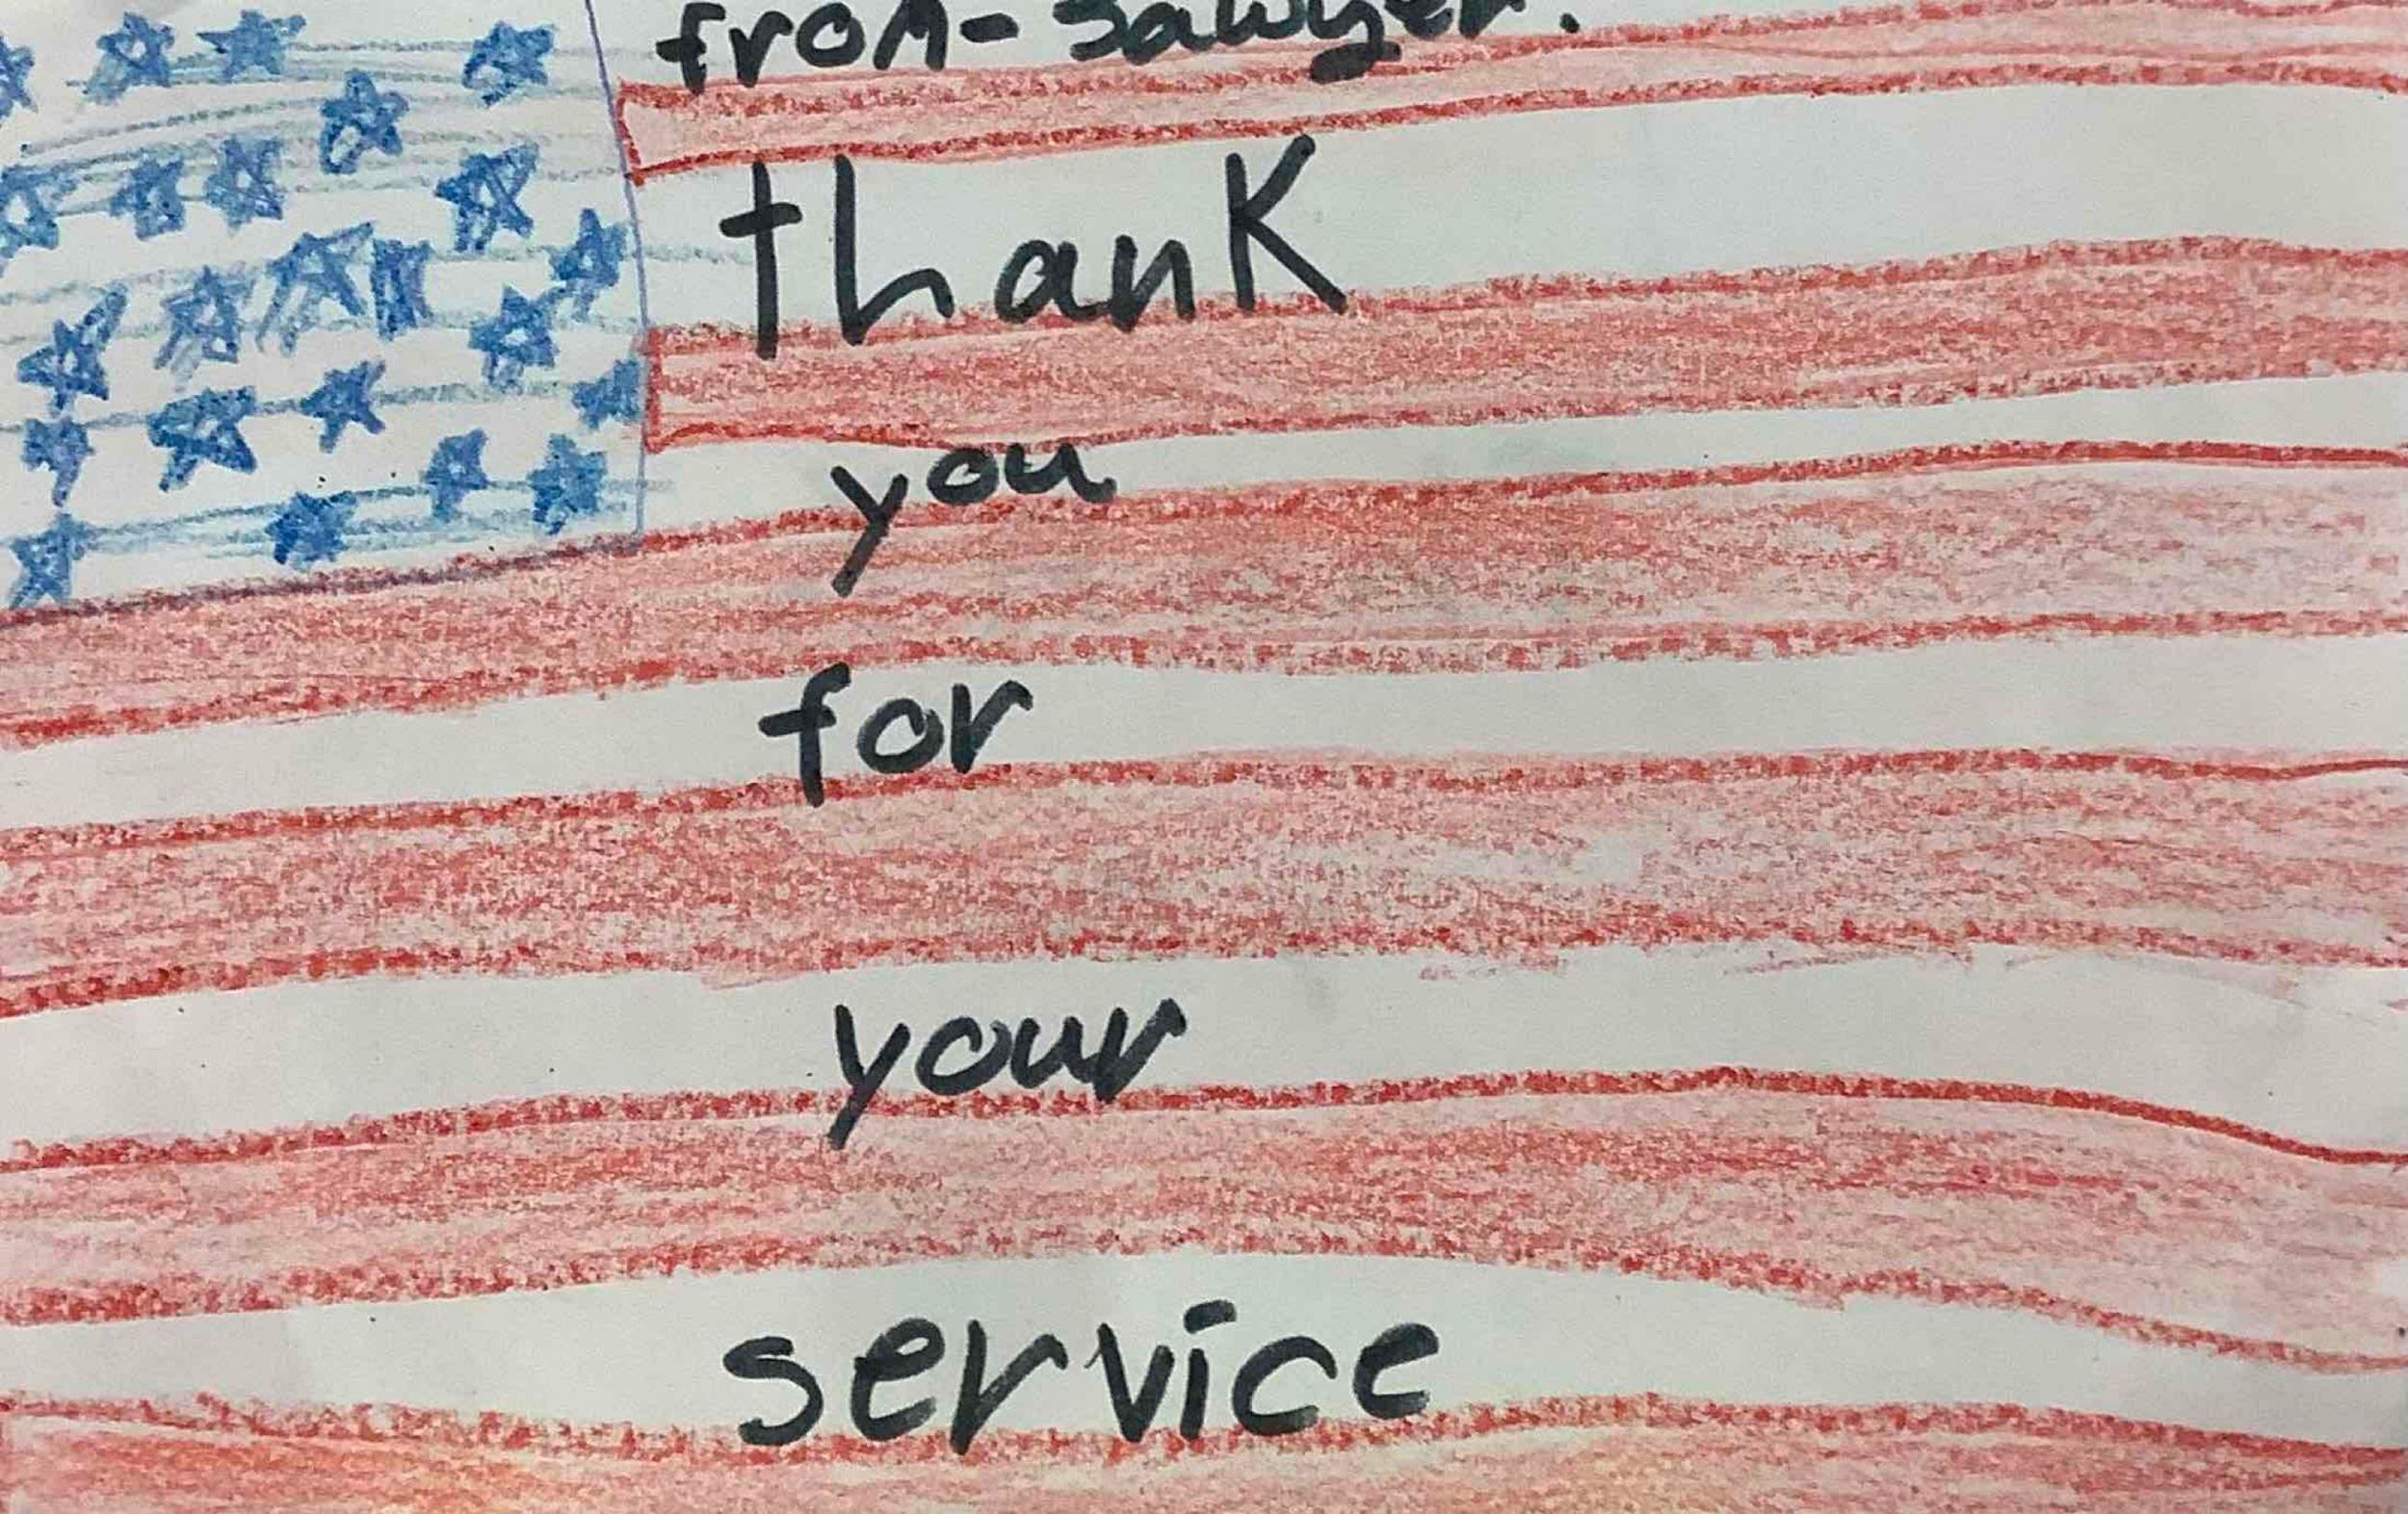 from- Sawyer.
thanK
you
for
your
service